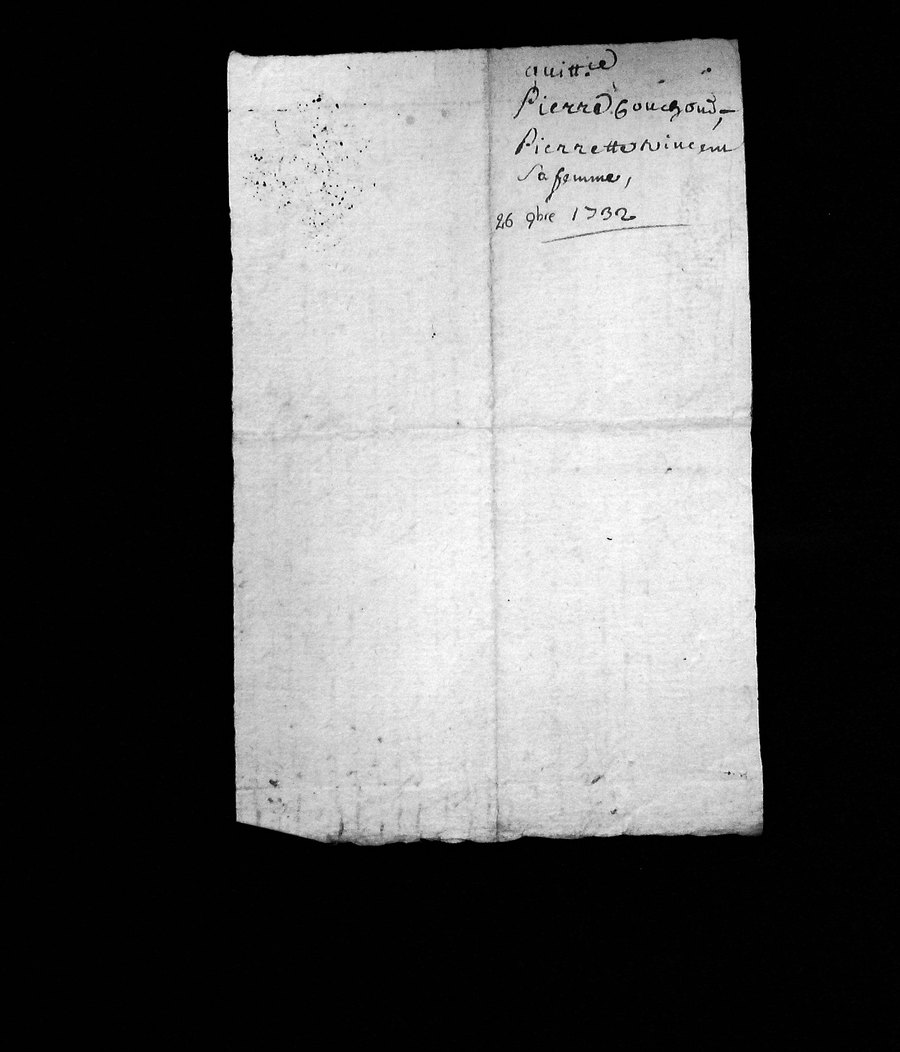 quitt.ce
Pierre Gouchoud,
Pierrette Vincent
Sa femme,
26 9bre 1732